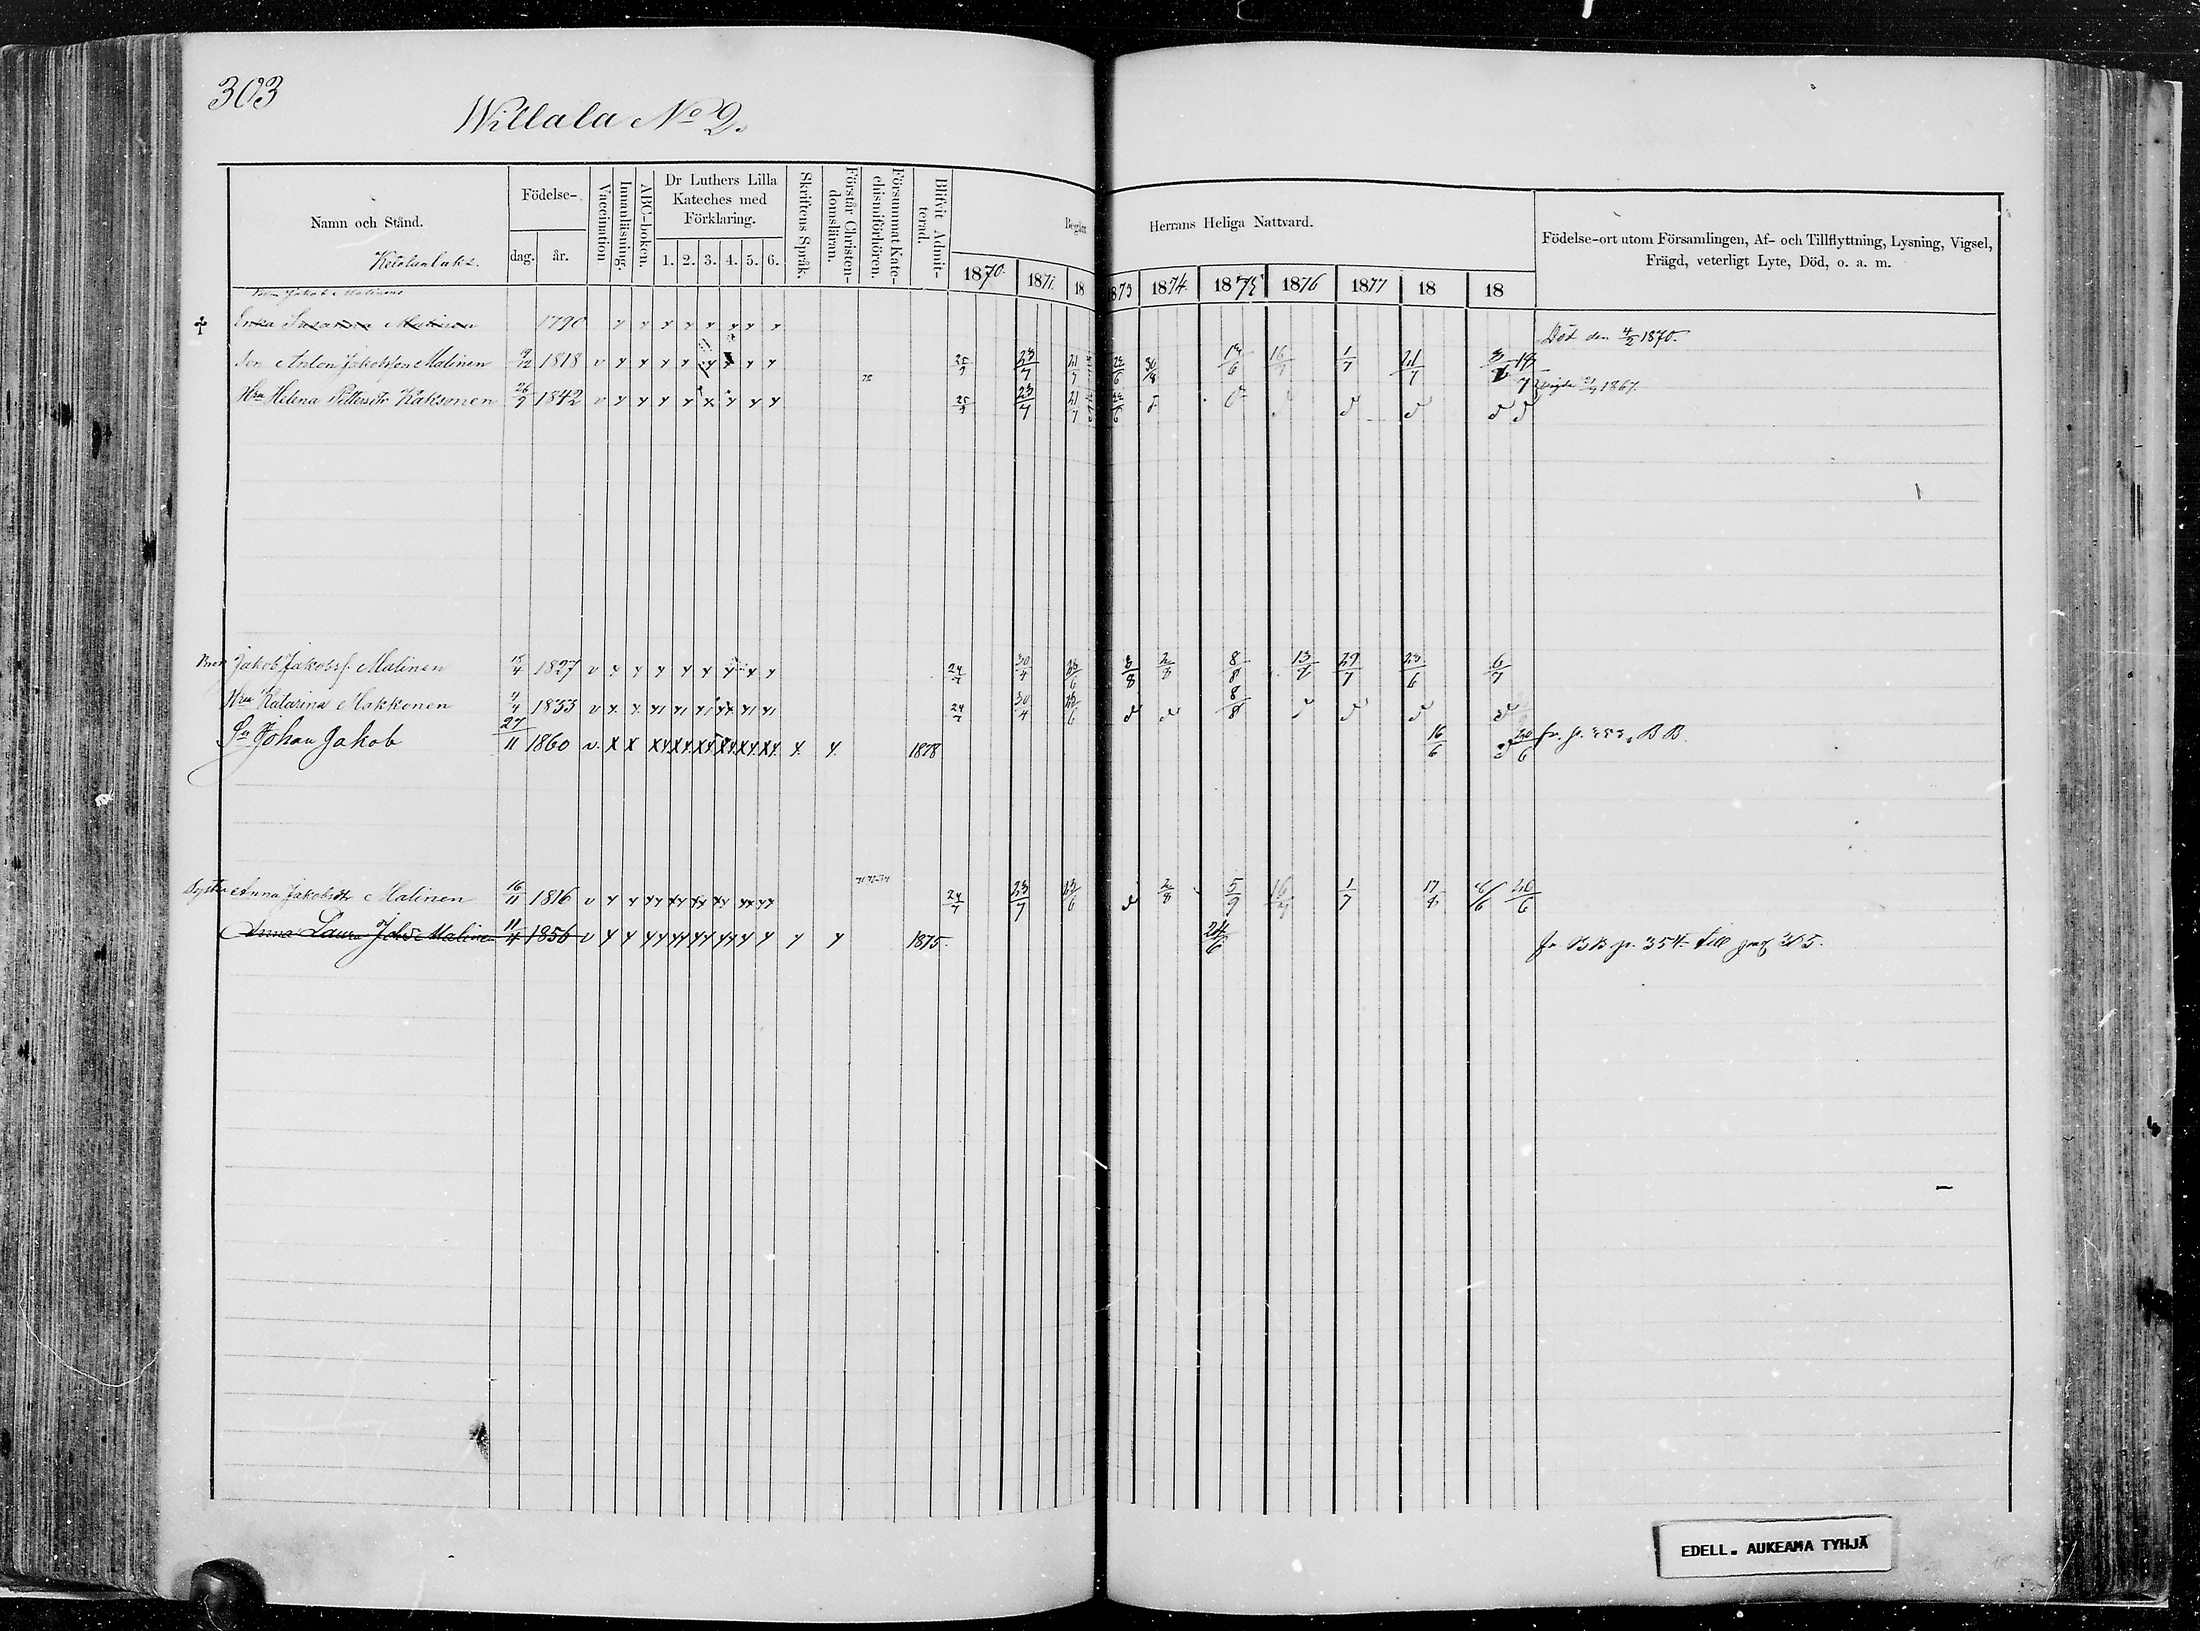 303
Willala No 2.
Namn och Stånd.
Födelse-
dag. år.
Vaccination.
Innanläsning.
ABC-boken.
Dr Luthers Lilla Kateches med Förklaring.
1. 2. 3. 4. 5. 6.
Skriftens Språk.
Förstår Christendomsläran.
Försummat Katechismiförhören.
Blifvit Admitterad.
Begått Herrans Heliga Nattvard.
1870. 1871. 18 1873 1874. 1875 1876 1877 18 18
Födelse-ort utom Församlingen, Af- och Tillflyttning, Lysning, Vigsel, Frägd, veterligt Lyte, Död, o. a. m.
Jakob Malinens
Enka Susanna Malinen 1790 Död den 4/2 1870.
Son Anton Jakobsson Malinen 1818 v x x x x x x x x 25/9 23/7 21/7 30/8 13/6 16/7 1/7 21/7
Hru Helena Pettersdr Kaksonen 26/9 1842 v x x x x x x x x 25/9 23/7 21/7 vigde 1867.
Bron Jakob Jakobss. Malinen 1827 v x x x x x x x x 24/7 30/4 23/6 8/8 2/8 8/8 13/7 29/7 23/6 6/7
Hru Katarina Makkonen 1833 v 24/7 30/4 23/6 8/8
Sn Johan Jakob 27/11 1860 v x x 1878 16/6 20/6 fr. p. BB.
Syster Anna Jakobsdr Malinen 16/11 1816 v 24/7 23/7 23/6 2/8 5/9 16/7 1/7 17/8 8/6 20/6
Anna Laura Johsdr Malinen 11/4 1856 v 1875. 24/6 fr BB p. 354 till pag 305.
EDELL. AUKEAMA TYHJÄ